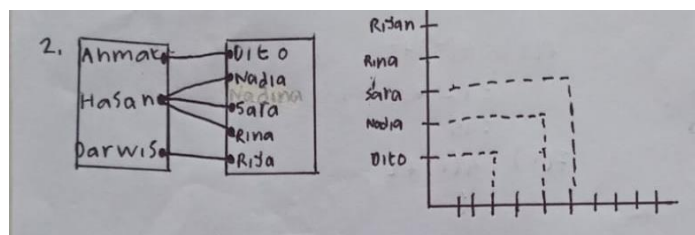 2.
Ahmat
Hasan
Darwis
Dito
Nadia
Nadina
Sara
Rina
Riya
Riyan
Rina
Sara
Nadia
Dito